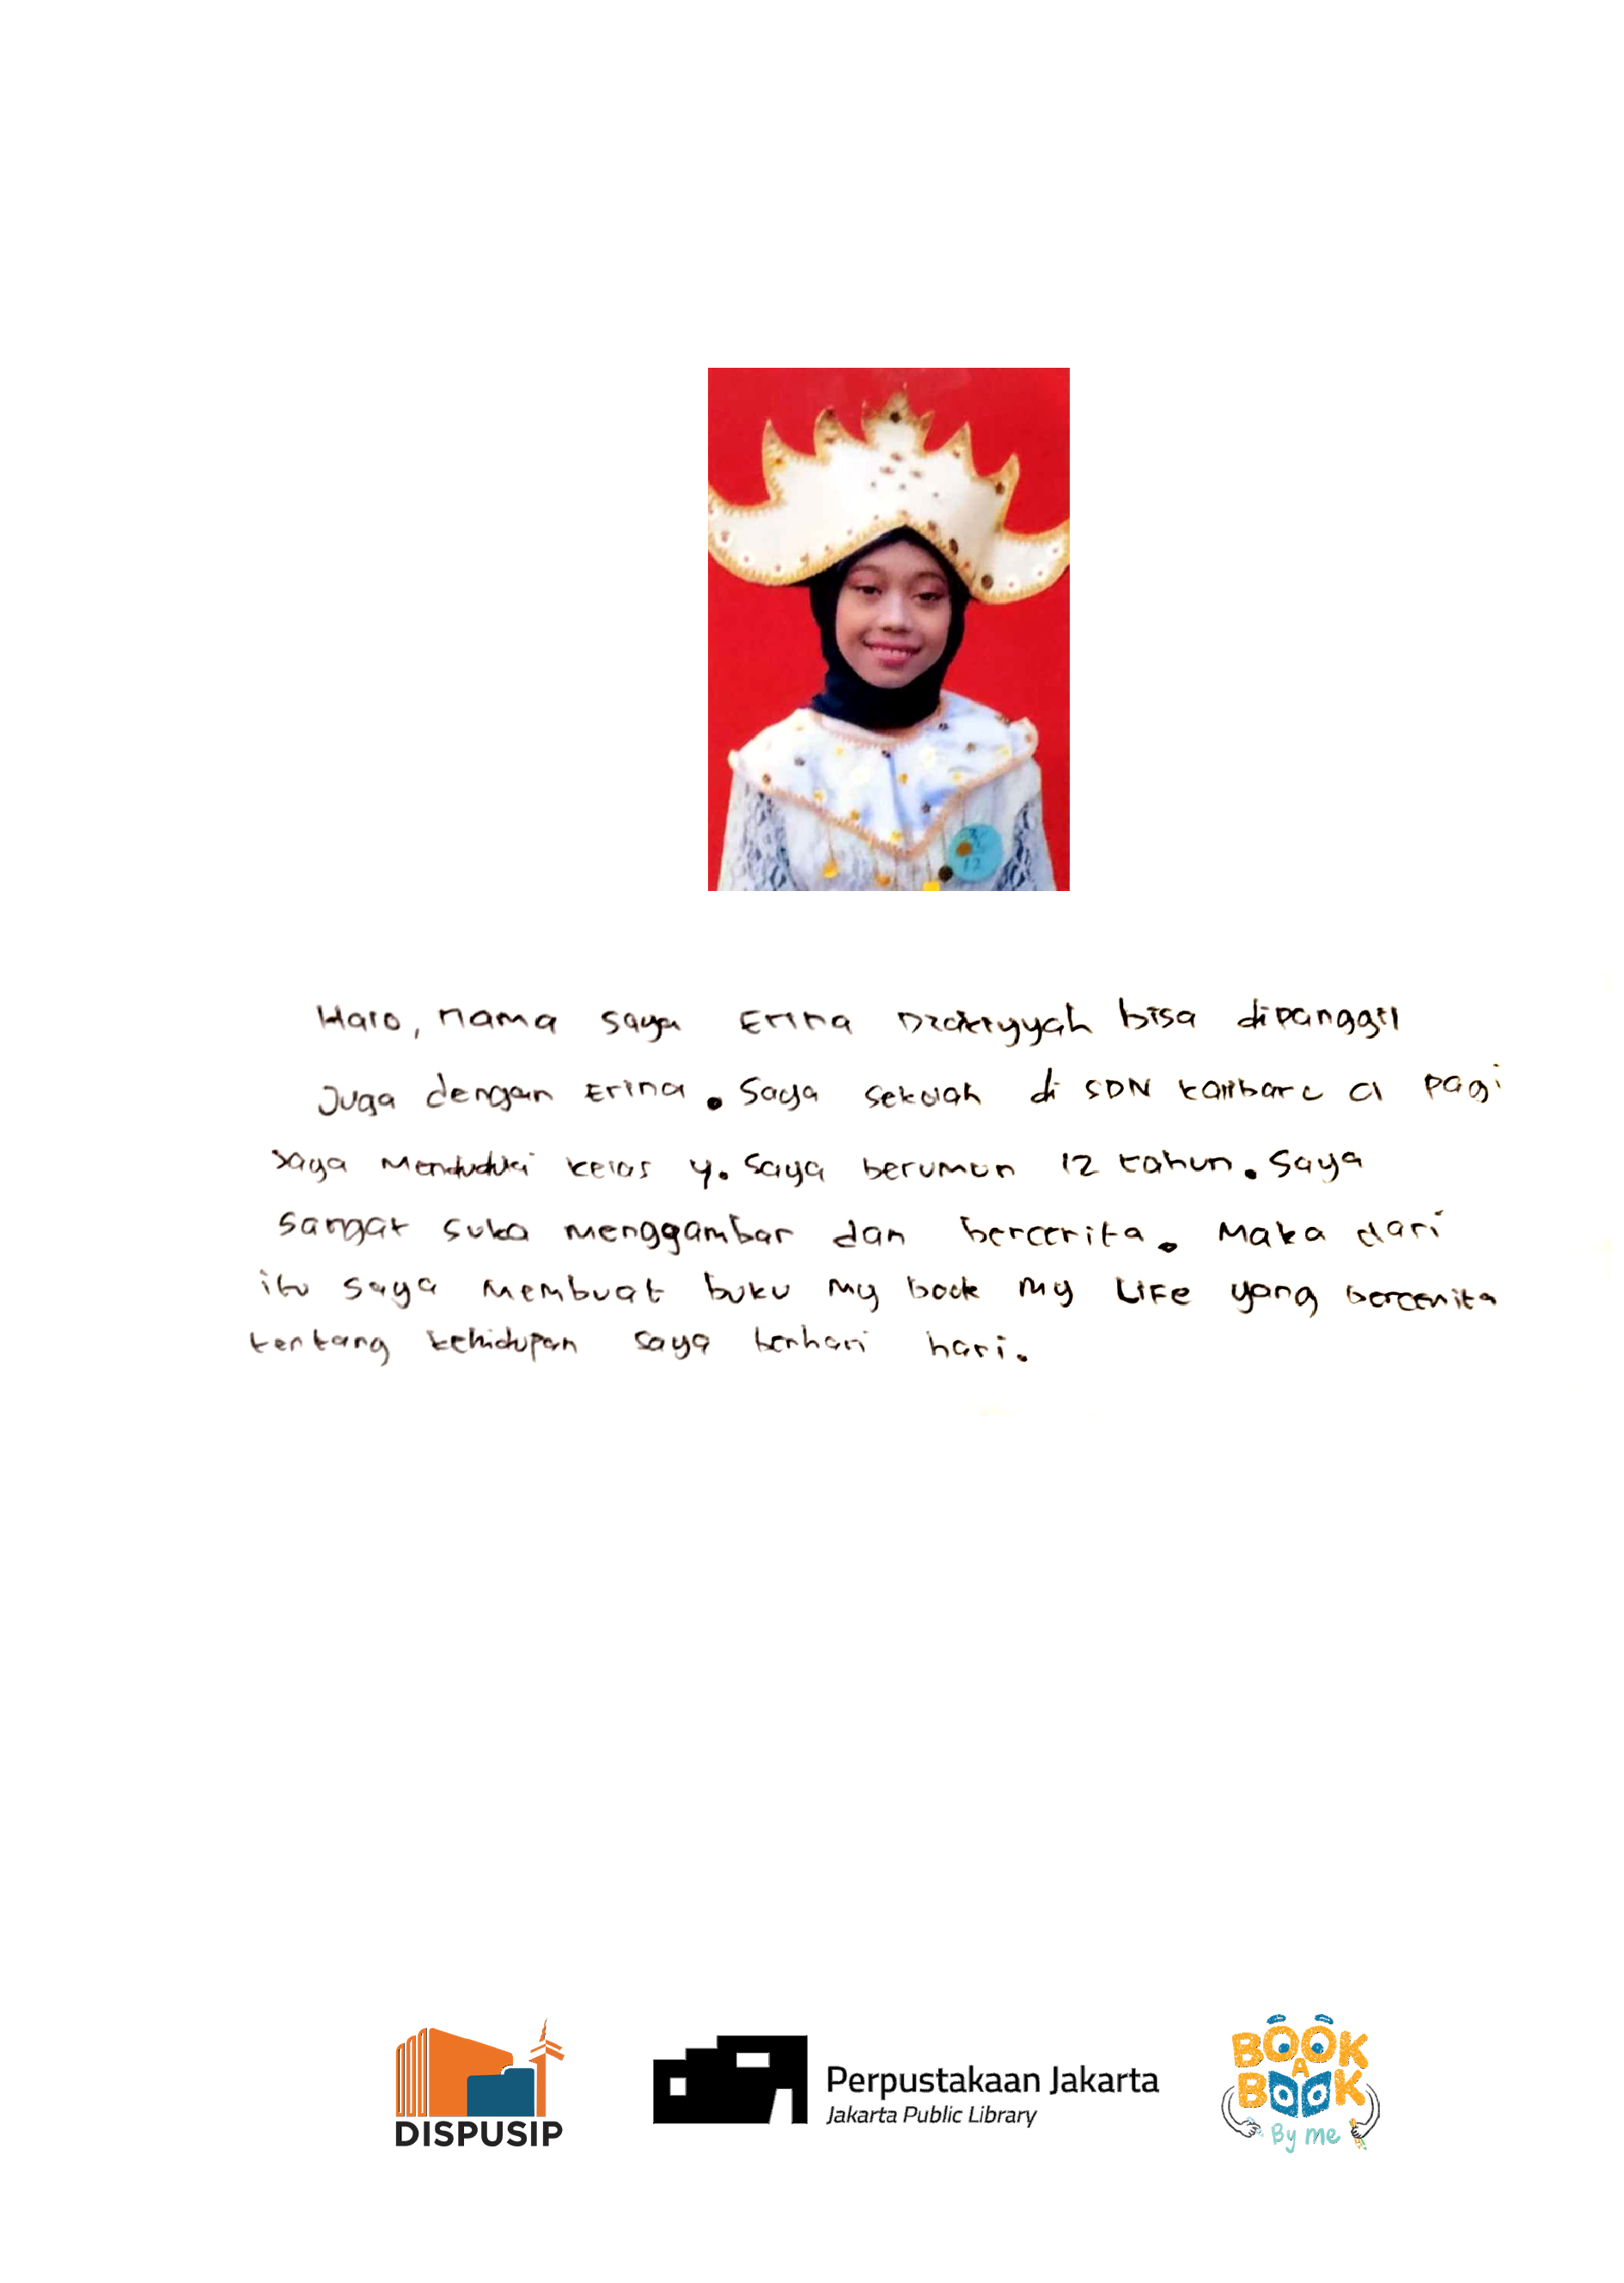 Halo, nama saya Erina Dzakiyyah bisa dipanggil
Juga dengan Erina. Saya sekolah di SDN kalibaru 01 pagi
saya menduduki kelas 4. Saya berumur 12 tahun. Saya
sangat suka menggambar dan bercerita. Maka dari
itu saya membuat buku My book My Life yang bercerita
tentang kehidupan saya berhari hari.
DISPUSIP
Perpustakaan Jakarta
Jakarta Public Library
BOOK
A
BOOK
By me